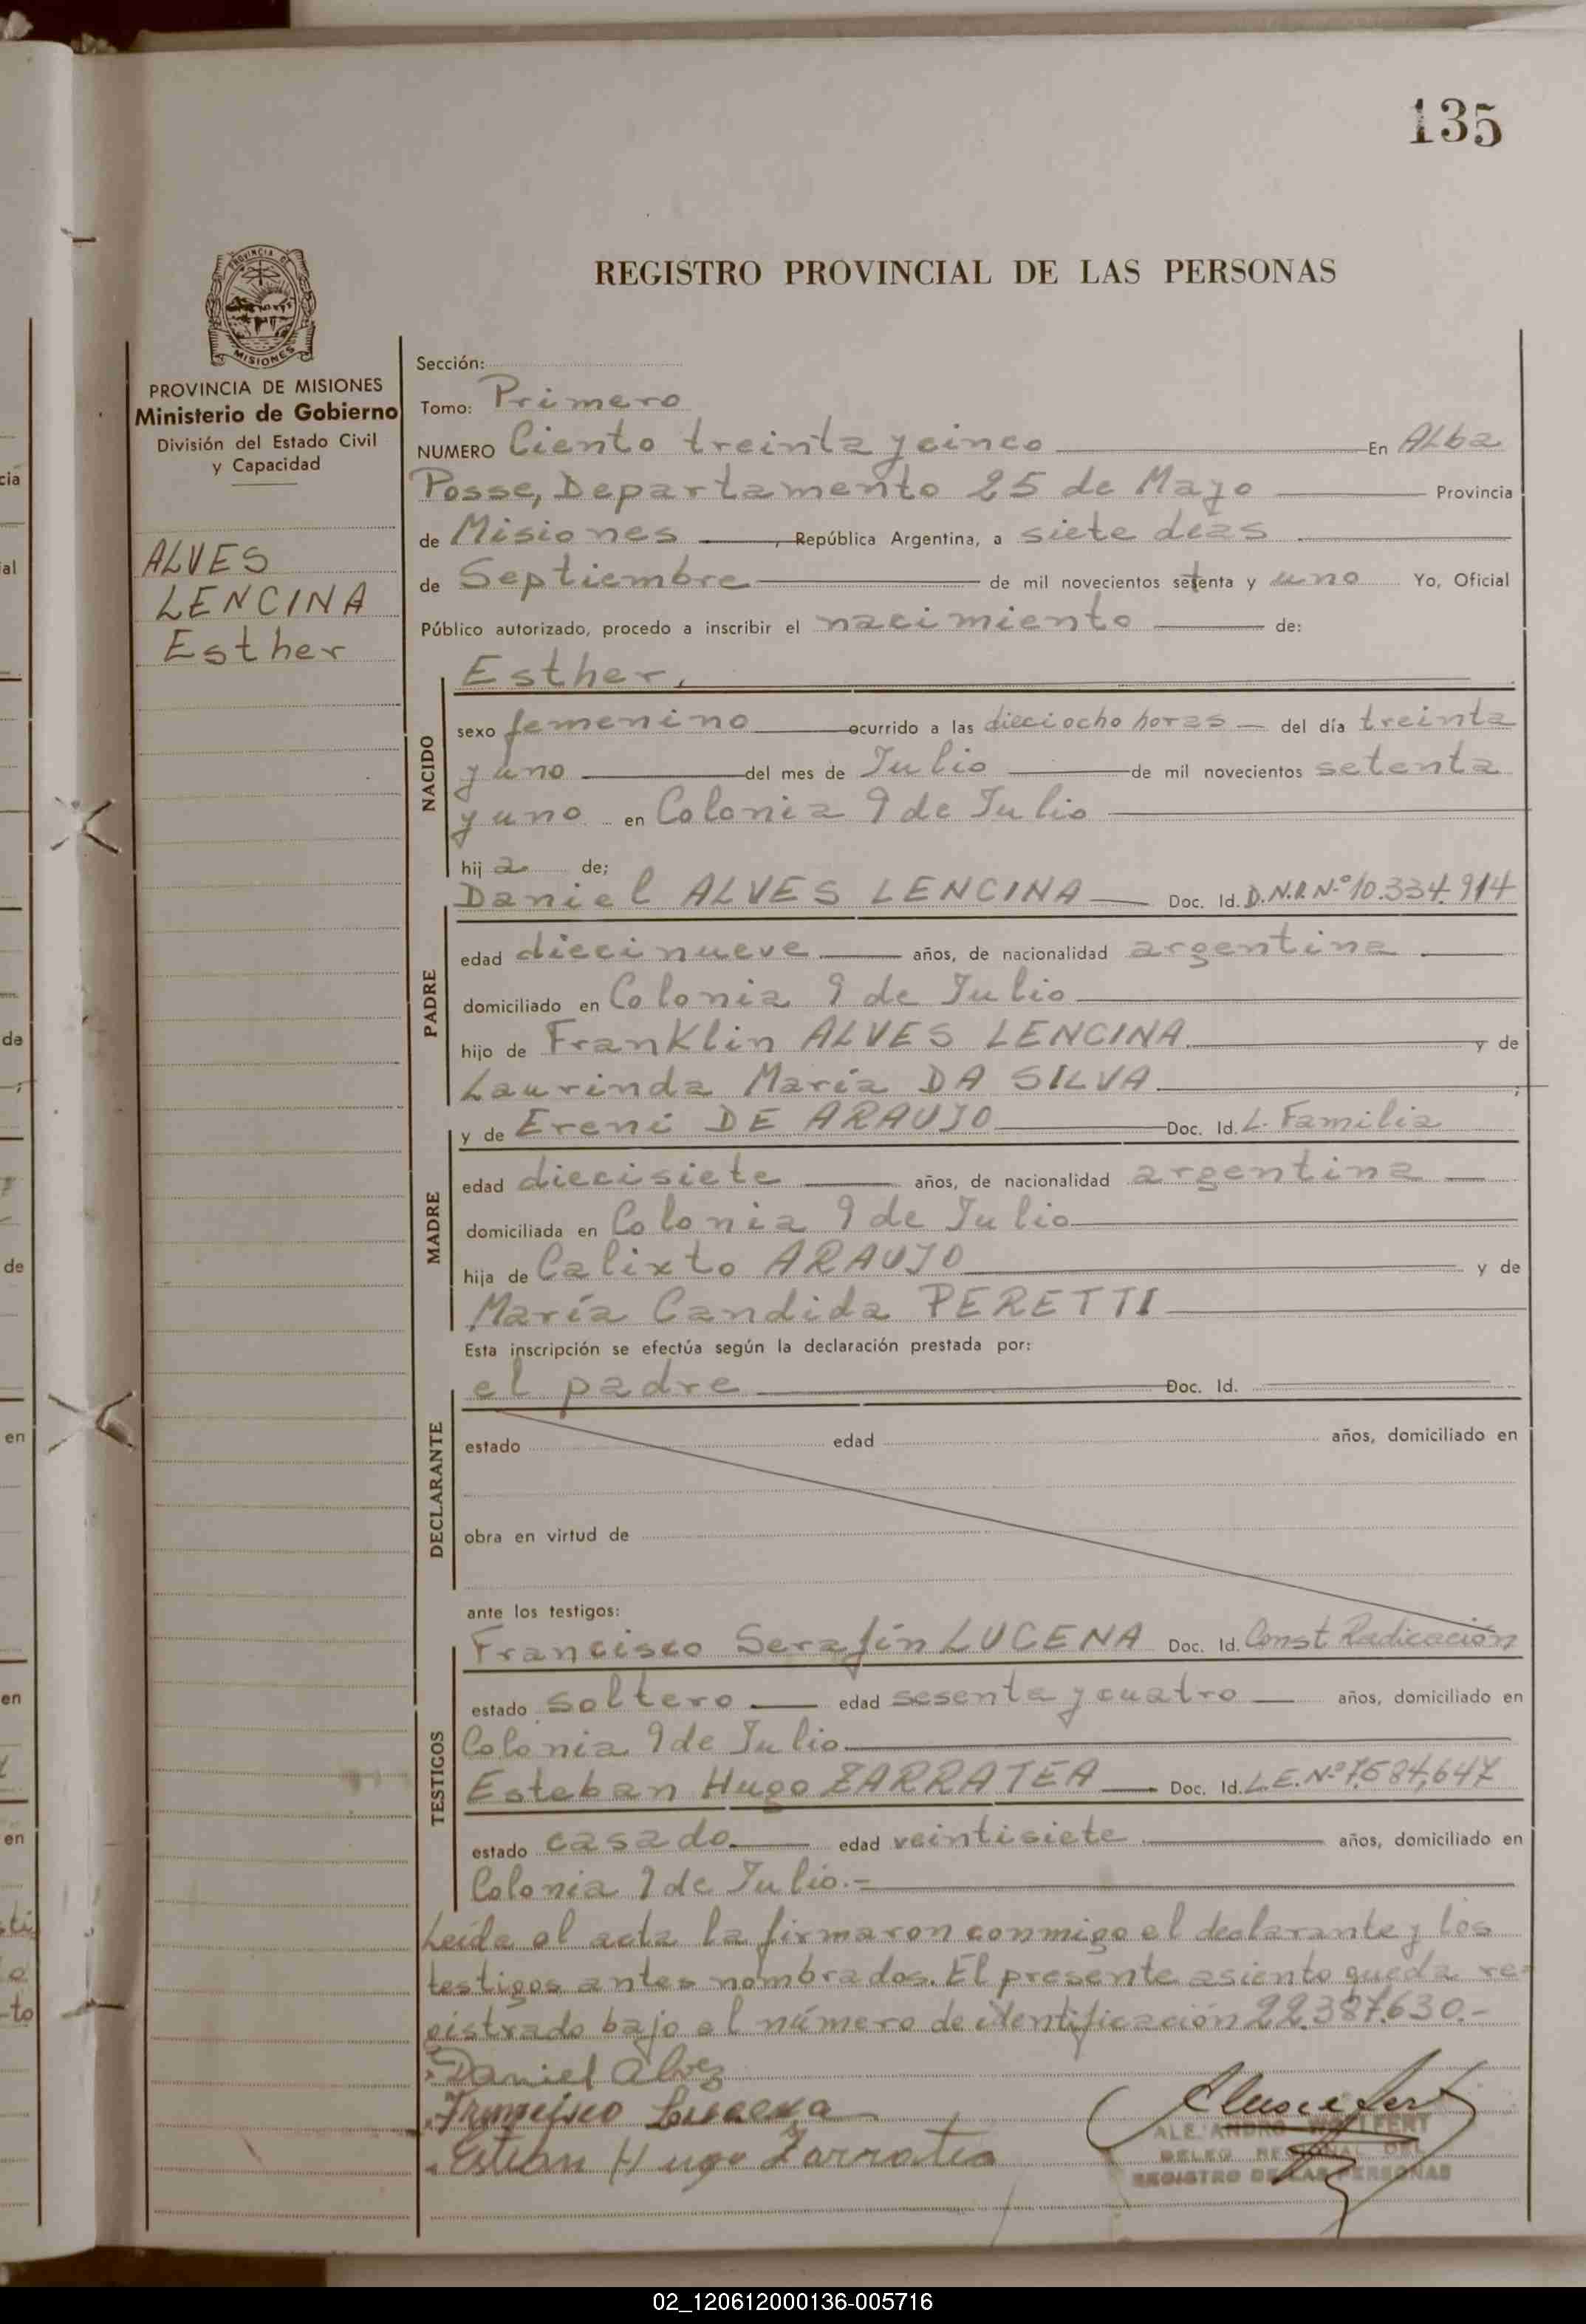 135
PROVINCIA DE
MISIONES
REGISTRO PROVINCIAL DE LAS PERSONAS
PROVINCIA DE MISIONES
Ministerio de Gobierno
División del Estado Civil
y Capacidad
ALVES
LENCINA
Esther
Sección:
Tomo: Primero
NUMERO Ciento treinta y cinco En Alba
Posse, Departamento 25 de Mayo Provincia
de Misiones, República Argentina, a siete deas
de Septiembre de mil novecientos setenta y uno Yo, Oficial
Público autorizado, procedo a inscribir el nacimiento de:
Esther,
NACIDO
sexo femenino ocurrido a las dieciocho horas del día treinta
y uno del mes de Julio de mil novecientos setenta
y uno en Colonia 9 de Julio
hij a de;
PADRE
Daniel ALVES LENCINA Doc. Id. D.N.I. Nº 10.334.914
edad diecinueve años, de nacionalidad argentina
domiciliado en Colonia 9 de Julio
hijo de Franklin ALVES LENCINA y de
Laurinda María DA SILVA ;
MADRE
y de Ereni DE ARAUJO Doc. Id. L. Familia
edad diecisiete años, de nacionalidad argentina
domiciliada en Colonia 9 de Julio
hija de Calixto ARAUJO y de
María Candida PERETTI
Esta inscripción se efectúa según la declaración prestada por:
DECLARANTE
el padre Doc. Id.
estado edad años, domiciliado en
obra en virtud de
ante los testigos:
TESTIGOS
Francisco Serafín LUCENA Doc. Id. Const Radicación
estado soltero edad sesenta y cuatro años, domiciliado en
Colonia 9 de Julio
Esteban Hugo ZARRATEA Doc. Id. L.E. Nº 7.584,647
estado casado edad veintisiete años, domiciliado en
Colonia 9 de Julio.-
Leída el acta la firmaron conmigo el declarante y los
testigos antes nombrados. El presente asiento queda re-
gistrado bajo el número de identificación 22.387.630.-
Daniel Alvez
Francisco Lucena
Esteban Hugo Zarratea
DELEG REGIONAL DEL
REGISTRO DE LAS PERSONAS
02_120612000136-005716